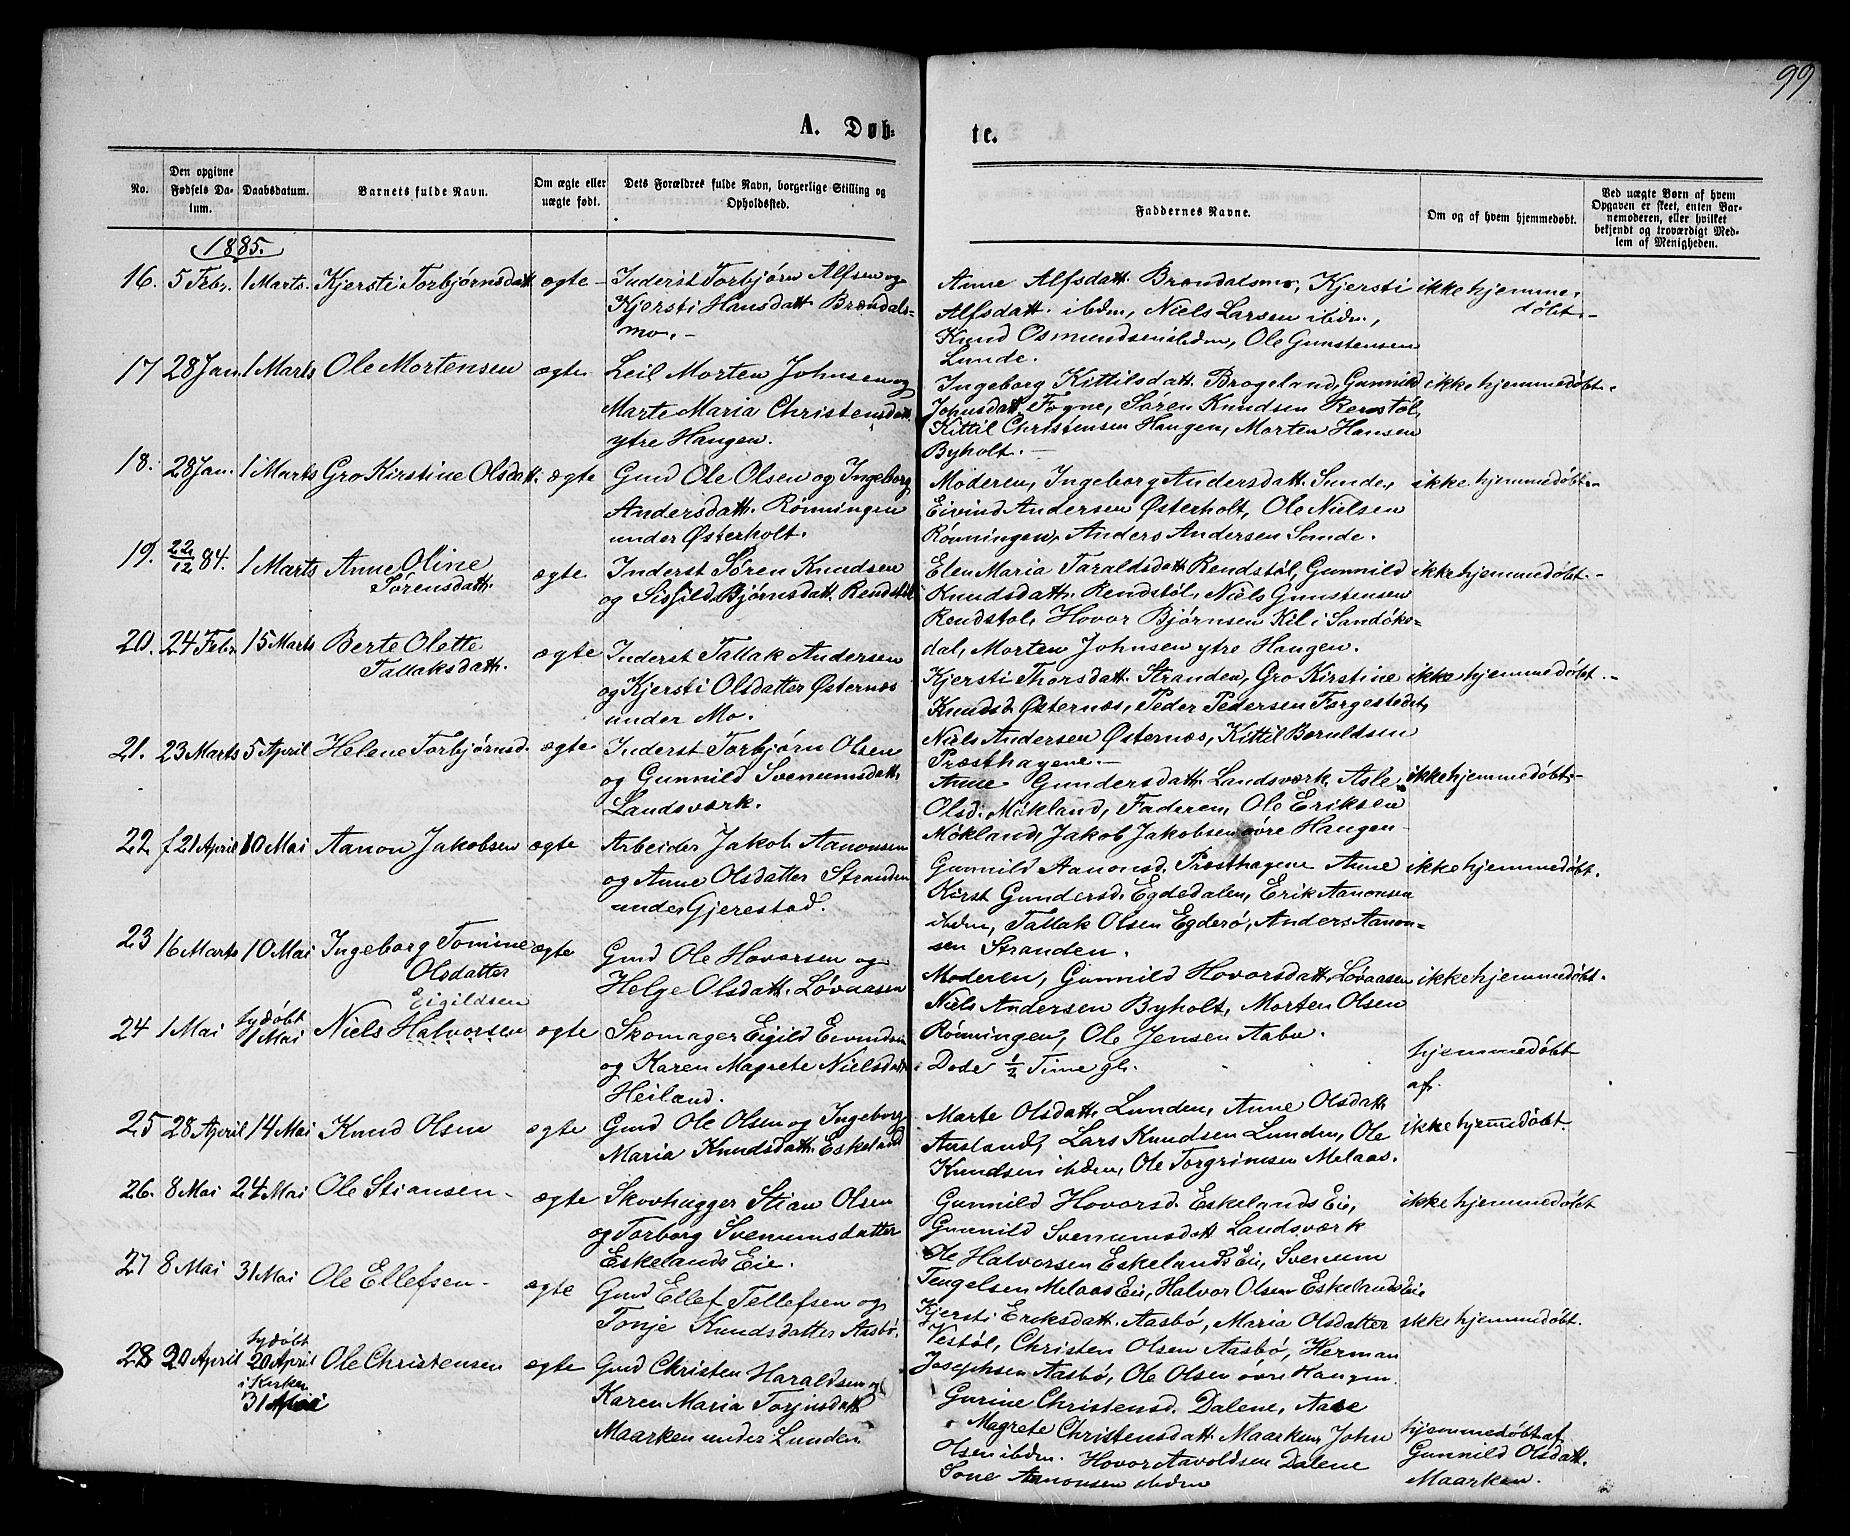 99
A. Døb-
te.
No.
Den opgivne Fødsels Datum.
Daabsdatum.
Barnets fulde Navn.
Om ægte eller uægte født.
Dets Forældres fulde Navn, borgerlige Stilling og Opholdsted.
Faddernes Navne.
Om og af hvem hjemmedøbt.
Ved uægte Børn af hvem Opgaven er skeet, enten Barnemoderen, eller hvilket bekjendt og troværdigt Medlem af Menigheden.
1885.
16. 5 Febr. 1 Marts. Kjersti Torbjørnsdatt. ægte - Inderst Torbjørn Alfsen og
Kjersti Hansdatt Brændals-
mo. -
Anne Alfsdatt. Brændalsmo, Kjersti ikke hjemme-
Alfsdatt. ibdm, Niels Larsen ibdm, døbt. -
Knud Osmundsen ibdm, Ole Gunstensen
Lunde.
17 28 Jan. 1 Marts Ole Mortensen ægte Leil Morten Johnsen og
Marte Maria Christensdatt.
ytre Haugen.
Ingeborg Kittilsdatt. Brogeland, Gunnild ikke hjemmedøbt.
Johnsdatt. Fogne, Søren Knudsen Renstøl,
Kittil Christensen Haugen, Morten Hansen
Byholt. -
18. 28 Jan. 1 Marts Gro Kirstine Olsdatt. ægte Gmd Ole Olsen og Ingeborg
Andersdatt. Rønningen
under Østerholt.
Moderen, Ingeborg Andersdatt. Sunde, ikke hjemmedøbt.
Eivind Andersen Østerholt, Ole Nielsen
Rønningen, Anders Andersen Sunde.
19. 22/12 84. 1 Marts Anne Oline
Sørensdatt. ægte Inderst Søren Knudsen
og Sissild Bjørnsdatt. Rendstøl
Elen Maria Taraldsdatt. Rendstøl, Gunnild ikke hjemmedøbt. -
Knudsdatt. Rendstøl, Niels Gunstensen
Rendstøl, Hovor Bjørnsen Kil i Sandøke-
dal, Morten Johnsen ytre Haugen.
20. 24 Febr. 15 Marts Berte Olette
Tallaksdatt. ægte Inderst Tallak Andersen
og Kjersti Olsdatter Østernes
under Mo.
Kjersti Thorsdatt. Stranden, Gro Kirstine ikke hjemmedøbt. -
Knudsd. Østernæs, Peder Pedersen Fargestedet,
Niels Andersen Østernæs, Kittil Beruldsen
Præsthagene. -
21. 23 Marts 5 April Helene Torbjørnsd. ægte Inderst Torbjørn Olsen
og Gunnild Svenumsdatt.
Landsværk.
Anne Gundersdatt. Landsværk, Asle ikke hjemmedøbt. -
Olsd. Møkland, Faderen, Ole Eriksen
Møkland, Jakob Jakobsen øvre Haugen -
22. f 21 April 10 Mai Aanon Jakobsen ægte Arbeider Jakob Aanonsen
og Anne Olsdatter Stranden
under Gjerestad.
Gunnild Aanonsd. Præsthagene Anne ikke hjemmedøbt.
Kirst Gundersd. Egdedalen, Erik Aanonsen
ibdm, Tallak Olsen Egderø, Anders Aanon-
sen Stranden.
23 16 Marts 10 Mai Ingeborg Tomine
Olsdatter ægte Gmd Ole Hovorsen og
Helge Olsdatt. Løvaasen
Moderen, Gunnild Hovorsdatt. Løvaasen ikke hjemmedøbt.
Niels Andersen Byholt, Morten Olsen
Rønningen, Ole Jensen Aabø.
24 1 Mai hjdøbt
1 Mai Eigildsen
Niels Halvorsen ægte Skomager Eigild Eivindsen
og Karen Magrete Nielsdatt.
Heiland.
Døde ½ Time gl. hjemmedøbt
af.
25 28 April 14 Mai Knud Olsen ægte Gmd Ole Olsen og Ingeborg
Maria Knudsdatt. Eskeland
Marte Olsdatt. Lunden, Anne Olsdatt ikke hjemmedøbt.
Ausland, Lars Knudsen Lunden, Ole
Knudsen ibdm, Ole Torgrimsen Melaas.
26. 8 Mai 24 Mai Ole Stiansen - ægte Skovhugger Stian Olsen
og Torborg Svenumsdatter
Eskelands Eie.
Gunnild Hovorsd. Eskelands Eie, ikke hjemmedøbt
Gunnild Svenumsdatt Landsværk
Ole Halvorsen Eskelands Eie, Svenum
Tengelsen Melaas Eie, Halvor Olsen Eskelands Eie
27 8 Mai 31 Mai Ole Ellefsen - ægte Gmd Ellef Tellefsen og
Tonje Knudsdatter Aasbø.
Kjersti Eriksdatt. Aasbø, Maria Olsdatter ikke hjemmedøbt.
Vestøl, Christen Olsen Aasbø, Herman
Josephsen Aasbø, Ole Olsen øvre Haugen.
28 20 April hjdøbt
20 April
i Kirken
31 Mai Ole Christensen ægte Gmd Christen Haraldsen og
Karen Maria Torjusdatt
Maarken under Lunden
Gurine Christensd. Dalene, Aase
Magrete Christensdatt. Maarken, John hjemmedøbt af
Olsen ibdm. Hovor Aavoldsen Dalene Gunnild Olsdatt.
Sone Aanonsen ibdm Maarken.